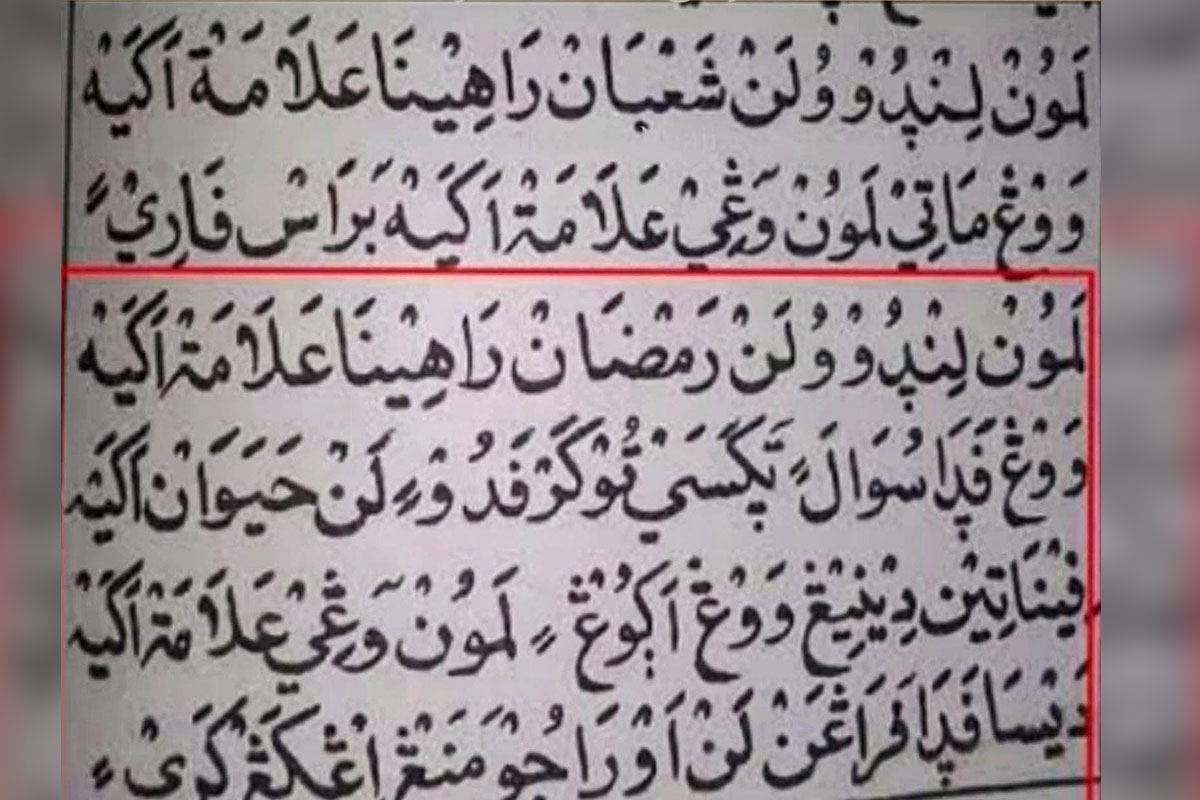 لَمَوُنْ لِنْڊُوْ وُوْلَنْ شَعْبَانْ رَاهِيْنَا عَلَامَةْ اَكَيَهْ
وَوْڠْ مَاتِيْ لَمَوُنْ وَڠِيْ عَلَامَةْ اَكَيَهْ بَرَاسْ فَارِيْ
لَمَوُنْ لِنْڊُوْ وُوْلَنْ رَمَضَانْ رَاهِيْنَا عَلَامَةْ اَكَيَهْ
وَوْڠْ فَڊَا سُوَالَ ٢ تَڮَسَيْ تُوْكَرْ فَدُوْ ٢ لَنْ حَيَوَانْ اَكَيَهْ
فِيْنَاتِيْنْ دِيْنِيْڠْ وَوْڠْ اَڮُوْڠْ ٢ لَمَوُنْ وَڠِيْ عَلَامَةْ اَكَيَهْ
دَيْسَا فَڊَا فَرَاڠَنْ لَنْ اَوْرَا جُوْمَنَڠْ اِڠْكَڠْ كَرِيْ